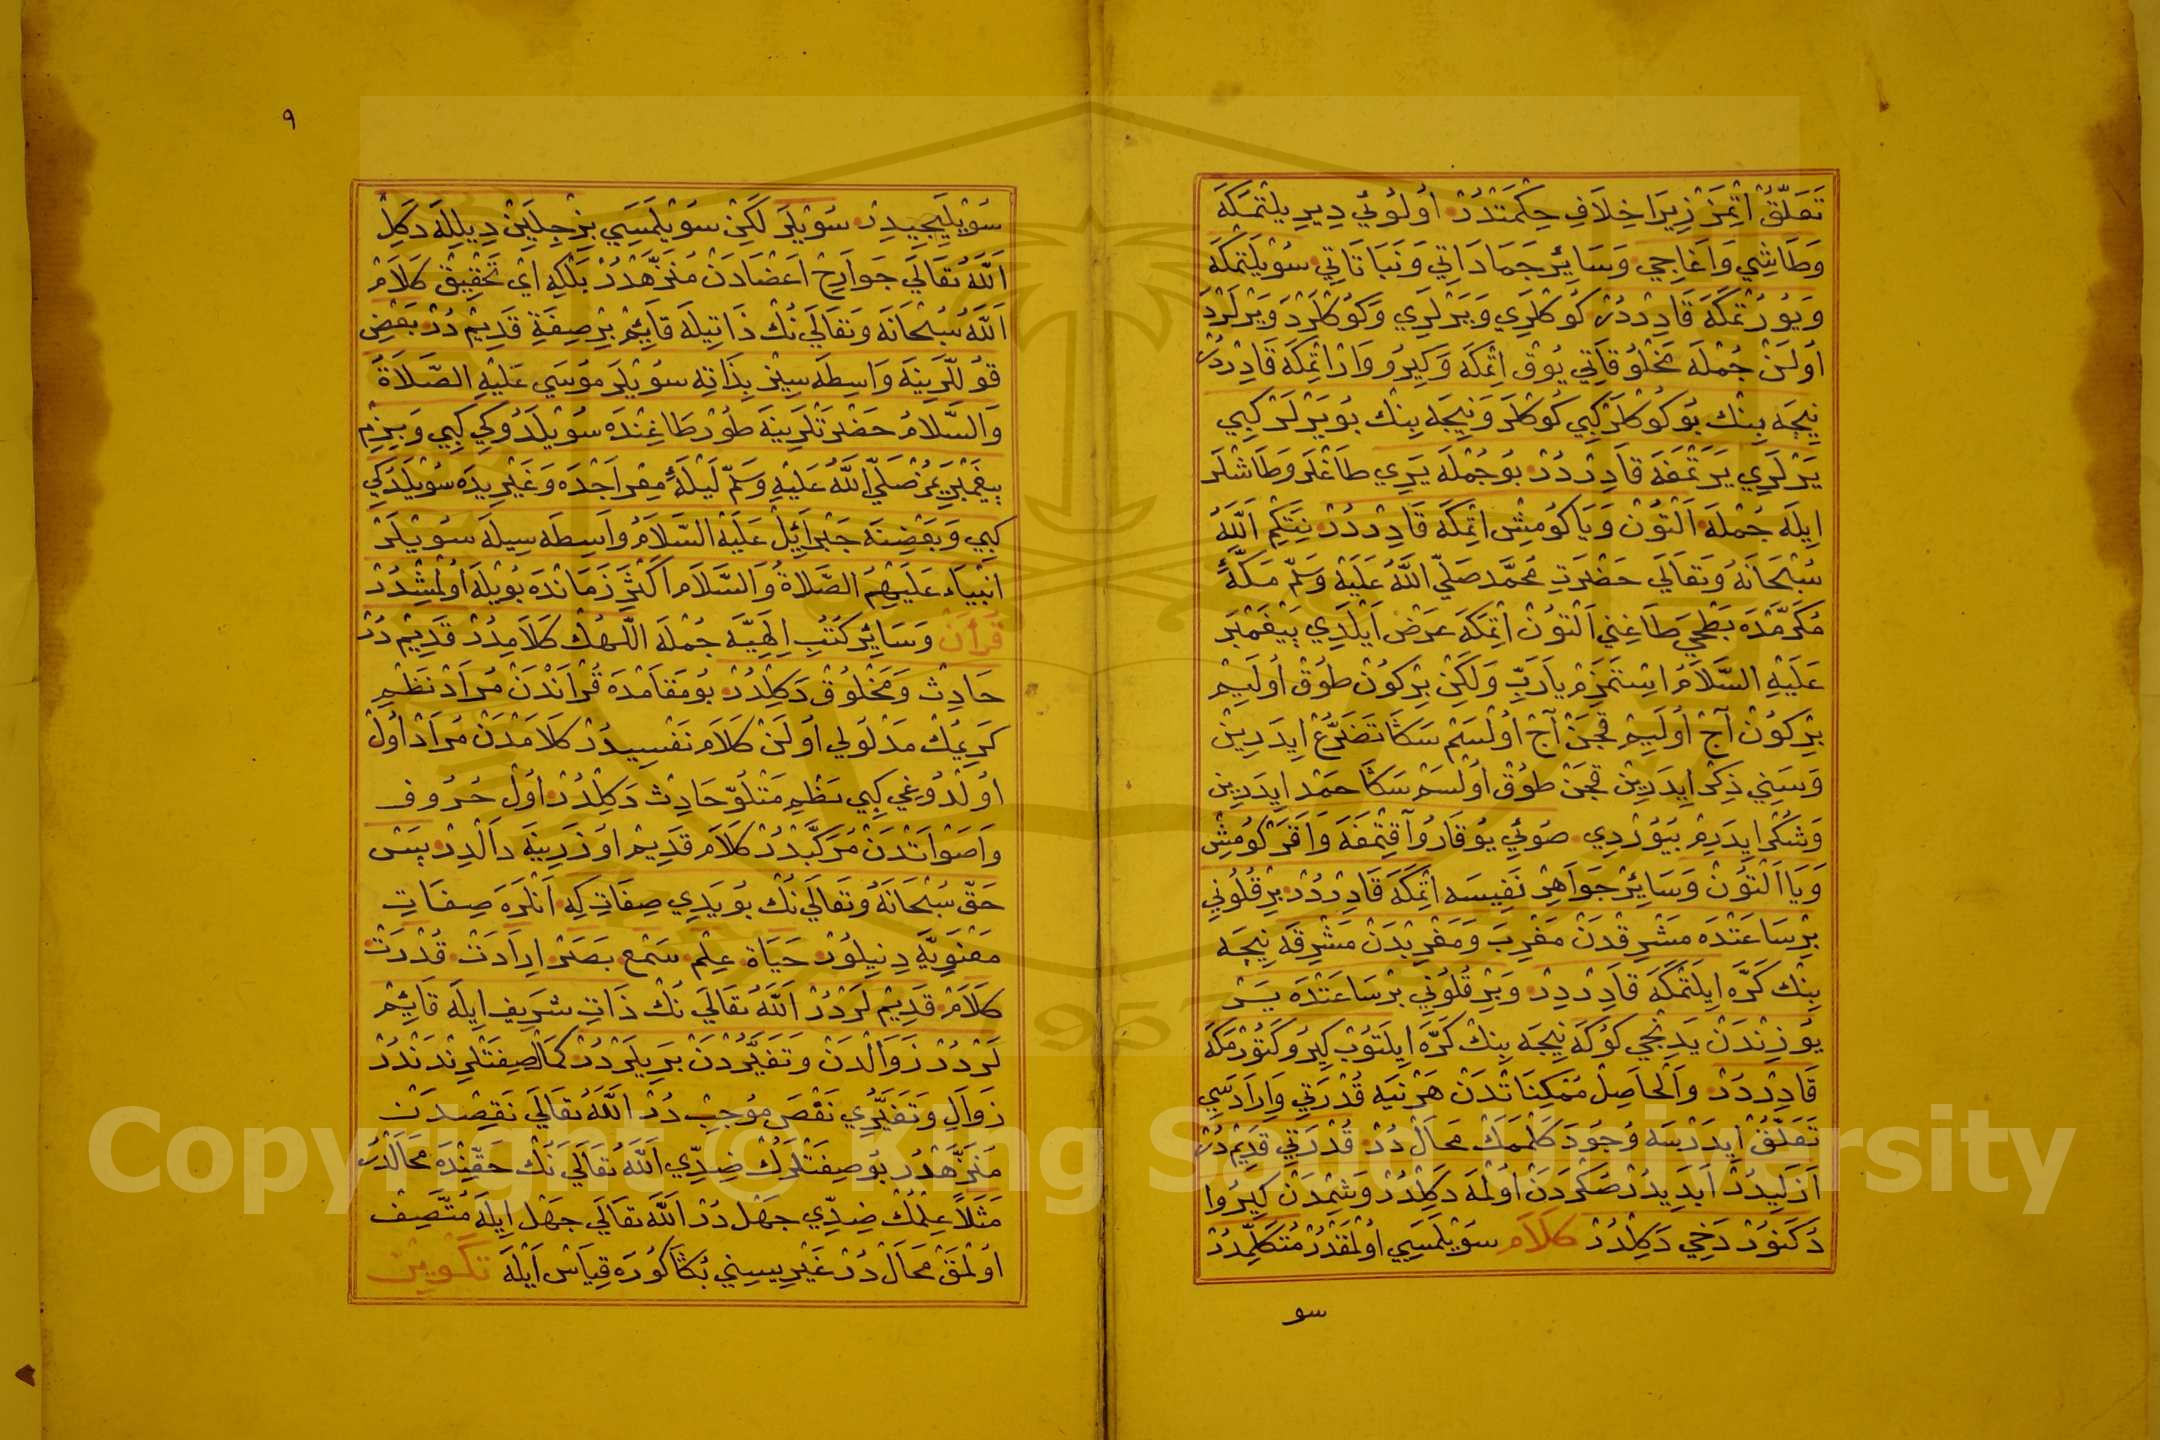 تَعَلُّقْ اتْمَزْ زِيرَا خِلَافِ حِكْمَتْدُرْ اُولُوئِي دِيرِيلْتِمَكَه
وَطَاشِي وَاَغَاجِي وَسَائِرْ جَمَادَاتِي وَنَبَاتَاتِي سُوْيلَتْمَكَه
وَيُورُتْمَكَه قَادِرْدُرْ كُوكْلَرِي وَيَرْلَرِي وَكُوكْلَرْدَه وَيَرْلَرْدَه
اُولَنْ جُمْلَه مَخْلُوقَاتِي يُوقْ اتْمَكَه وَكِيرُو وَارْ اتْمَكَه قَادِرْدُرْ
نِيجَه بِيْنْكْ بُو كُوكْلَرْ كِبِي كُوكْلَرْ وَنِيجَه بِيْنْكْ بُو يَرْلَرْ كِبِي
يَرْلَرِي يَرَتْمَغَه قَادِرْدُرْ بُو جُمْلَه يَرِي طَاغْلَرْ وَطَاشْلَرْ
ايلَه جُمْلَه اَلْتُونْ وَيَا كُومِشْ اتْمَكَه قَادِرْدُرْ نِتَكِمْ اَللّٰهُ
سُبْحَانَهُ وَتَعَالَي حَضْرَتِ مُحَمَّد صَلَّي اللّٰهُ عَلَيْهِ وَسَلَّمْ مَكَّهءِ
مُكَرَّمَدَه بَطْحَي طَاغِنِي اَلْتُونْ اتْمَكَه عَرْضْ اَيْلَدِي پَيْغَمْبَرْ
عَلَيْهِ السَّلَامُ اسْتَمَزِمْ يَا رَبِّ وَلَكِنْ بِرْ كُونْ طُوقْ اُولَيِمْ
بِرْ كُونْ آجْ اُولَيِمْ قَچَنْ آجْ اُولْسَمْ سَكَا تَضَرُّعْ ايدَرِينْ
وَسَنِي ذِكْرْ ايدَرِينْ قَچَنْ طُوقْ اُولْسَمْ سَكَا حَمْد ايدَرِينْ
وَشُكْرْ ايدَرِمْ بُيُورْدِي صُوئِي يُوقَارُو آقِتْمَغَه وَاَقَرْ كُومِشْ
وَيَا اَلْتُونْ وَسَائِرْ جَوَاهِرْ نَفِيسَه اتْمَكَه قَادِرْدُرْ بِرْ قُلُونِي
بِرْ سَاعَتْدَه مَشْرِقْدَنْ مَغْرِبَه وَمَغْرِبْدَنْ مَشْرِقَه نِيجَه
بِيْنْكْ كَرَّه ايلَتْمَكَه قَادِرْدِرْ وَبِرْ قُلُونِي بِرْ سَاعَتْدَه يَرْ
يُوزِنْدَنْ يَدِنْجِي كُوكَه نِيجَه بِيْنْكْ كَرَّه ايلَتُوبْ كِيرُو كَتُورْمَكَه
قَادِرْدُرْ وَالْحَاصِلْ مُمْكِنَاتْدَنْ هَرْ نَيَه قُدْرَتِي وَارَادَسِي
تَعَلُّقْ ايدَرْسَه وُجُودَه كَلْمَمَكْ مَحَالْ دُرْ قُدْرَتِي قَدِيمْ دُرْ
اَزَلِيدُرْ اَبَدِيدُرْ صُكْرَدَنْ اُولْمَه دَكِلْدُرْ وَشِمْدَنْ كِيرُو
دُكَنُورْ دَخِي دَكِلْدُرْ كَلَامْ سُوَيْلَمَسِي اُولْمَقْدُرْ مُتَكَلِّمْدُرْ
سو
٩
سُوْيلَيِجِيدِرْ سُوَيْلَرْ لَكِنْ سُوَيْلَمَسِي بِزْجِلَيِنْ دِيلِلَه دَكِلْ
اَللّٰهُ تَعَالَي جَوَارِحْ اَعْضَادَنْ مُنَزَّهْدُرْ بَلْكِه اَيْ تَحْقِيقْ كَلَامْ
اَللّٰهُ سُبْحَانَهُ وَتَعَالَي نُكْ ذَاتِيلَه قَائِمْ بِرْ صِفَةِ قَدِيمْ دُرْ بَعْضِ
قُوللَّرِينَه وَاسِطَه سِيزْ بِذَاتِهِ سُوَيْلَرْ مُوسَي عَلَيْهِ الصَّلَاةُ
وَالسَّلَامُ حَضْرَتْلَرِينَه طُورْ طَاغِنْدَه سُوَيْلَدُوكِي كِبِي وَبِزِمْ
پَيْغَمْبَرِيمُزْ صَلَّي اللّٰهُ عَلَيْهِ وَسَلَّمْ لَيْلَهءِ مِعْرَاجْدَه وَغَيْرِيدَه سُوَيْلَدُكِي
كِبِي وَبَعْضِنَه جَبْرَائِلْ عَلَيْهِ السَّلَامُ وَاسِطَه سِيلَه سُوَيْلَرْ
انْبِيَاء عَلَيْهِمُ الصَّلَاةُ وَالسَّلَامْ اَكْثَرِ زَمَانْدَه بُويْلَه اُولْمُشِدُرْ
قُرْآنْ وَسَائِرْ كُتُبِ اِلٰهِيَّه جُمْلَه اللّٰهُكْ كَلَامِدُرْ قَدِيمْ دُرْ
حَادِثْ وَمَخْلُوقْ دَكِلْدُرْ بُو مَقَامْدَه قُرْآنْدَنْ مُرَادْ نَظْمِ
كَرِيمُكْ مَدْلُولِي اُولَنْ كَلَامِ نَفْسِيدُرْ كَلَامْدَنْ مُرَادْ اُولْ
اُولْدُوغِي كِبِي نَظْمِ مَتْلُوّ حَادِثْ دَكِلْدُرْ اُولْ حُرُوفْ
وَاَصْوَاتْدَنْ مُرَكَّبْدُرْ كَلَامِ قَدِيمْ اُوزَرِينَه دَالْدِرْ پَسْ
حَقّ سُبْحَانَهُ وَتَعَالَي نُكْ بُو يَدِي صِفَاتِ كِه اَنْلَرَه صِفَاتِ
مَعْنَوِيَّه دِنِيلُورْ حَيَاةْ عِلْمْ سَمْعْ بَصَرْ ارَادَتْ قُدْرَتْ
كَلَامْ قَدِيمْ لَرْدُرْ اَللّٰهُ تَعَالَي نُكْ ذَاتِ شَرِيفِ ايلَه قَائِمْ
لَرْدُرْ زَوَالْدَنْ وَتَغَيُّرْدَنْ بَرِيلَرْدُرْ كَمَالِ صِفَتْلَرِنْدَنْدُرْ
زَوَالِ وَتَغَيُّرِي نَقْصَه مُوجِبْ دُرْ اَللّٰهُ تَعَالَي نَقِصْدَنْ
مُنَزَّهْدُرْ بُو صِفَتْلَرُكْ ضِدِّي اَللّٰهُ تَعَالَي نُكْ حَقِّنْدَه مَحَالْدُرْ
مَثَلًا عِلْمُكْ ضِدِّي جَهْلْ دُرْ اَللّٰهُ تَعَالَي جَهْلْ ايلَه مُتَّصِفْ
اُولْمَقْ مَحَالْ دُرْ غَيْرِيسِنِي بُكَا كُورَه قِيَاسْ اَيْلَه تَكْوِينْ